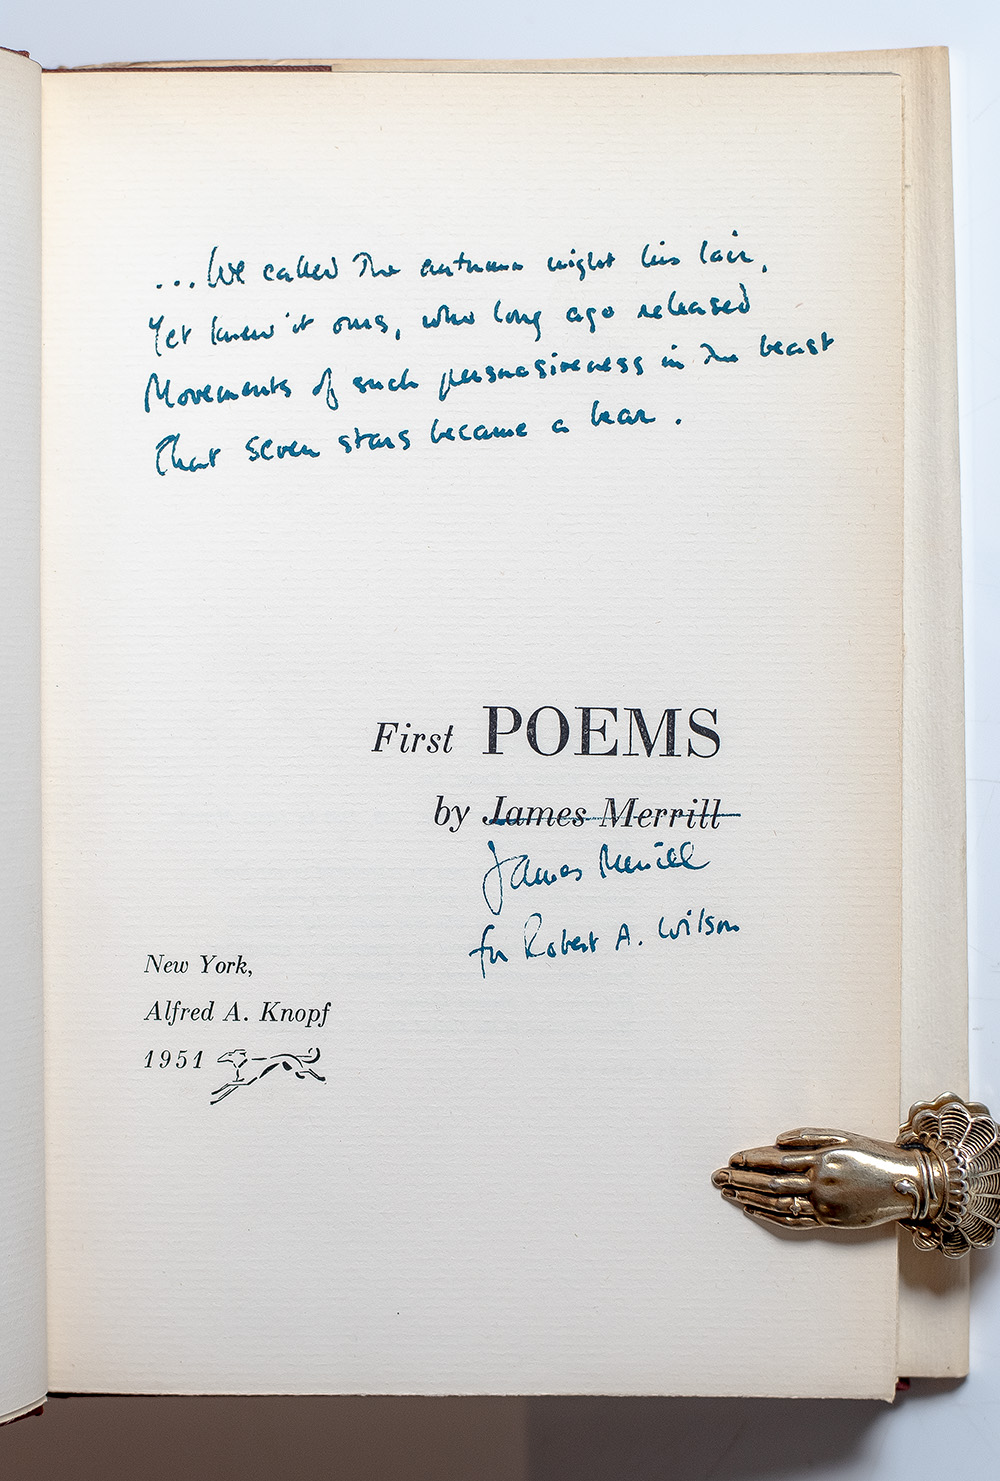 ...We called the autumn night his lair,
Yet knew it ours, who long ago released
Movements of such persuasiveness in the beast
That seven stars became a bear.
First POEMS
by James Merrill
James Merrill
for Robert A. Wilson
New York,
Alfred A. Knopf
1951